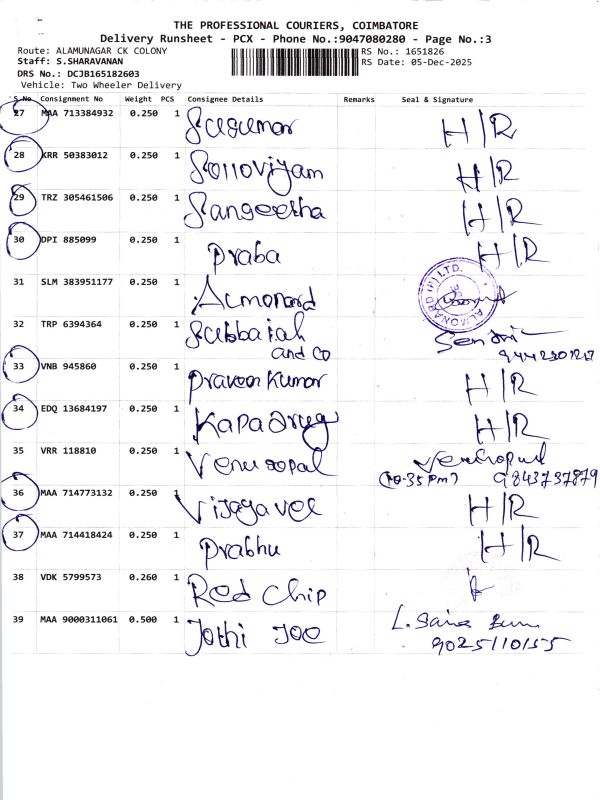 THE PROFESSIONAL COURIERS, COIMBATORE
Delivery Runsheet - PCX - Phone No.:9047080280 - Page No.:3
Route: ALAMUNAGAR CK COLONY RS No.: 1651826
Staff: S.SHARAVANAN RS Date: 05-Dec-2025
DRS No.: DCJB165182603
Vehicle: Two Wheeler Delivery
S.No Consignment No Weight PCS Consignee Details Remarks Seal & Signature
27 MAA 713384932 0.250 1 Sugumar H/R
28 KRR 50383012 0.250 1 H/R
29 TRZ 305461506 0.250 1 Sangeetha H/R
30 DPI 885099 0.250 1 Praba H/R
31 SLM 383951177 0.250 1 Almonard ALMONARD (P) LTD.
32 TRP 6394364 0.250 1 Subbaiah
and co
33 VNB 945860 0.250 1 Praveen Kumar H/R
34 EDQ 13684197 0.250 1 H/R
35 VRR 118810 0.250 1 Venugopal
9843737879
36 MAA 714773132 0.250 1 Vijayavel H/R
37 MAA 714418424 0.250 1 Prabhu H/R
38 VDK 5799573 0.260 1 Red Chip
39 MAA 9000311061 0.500 1 Jothi JOE